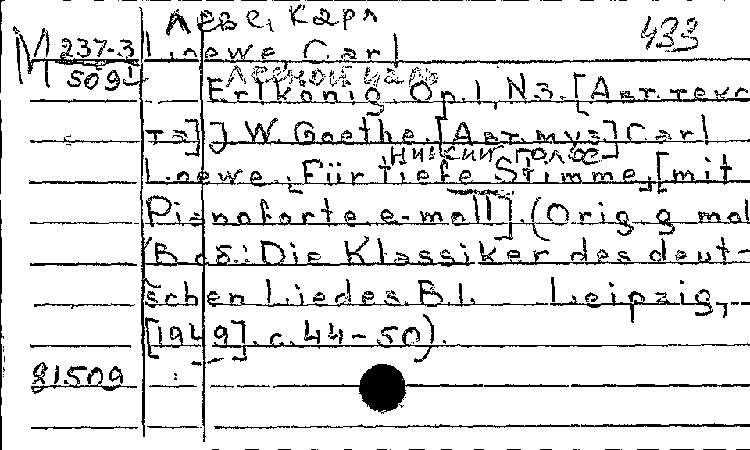 Леве, Карл
433
М 237-3
5091
Loewe, Carl
Лесной царь
Erlkönig. Op. 1, N3. [Авт. текс-
та] J. W. Goethe. [Авт. муз.] Carl
низкий голос
Loewe. Für tiefe Stimme, [mit
Pianoforte e-moll]. (Orig. g mol
В сб.: Die Klassiker des deut-
schen Liedes. B. I. Leipzig,
[1949]. с. 44-50).
81509